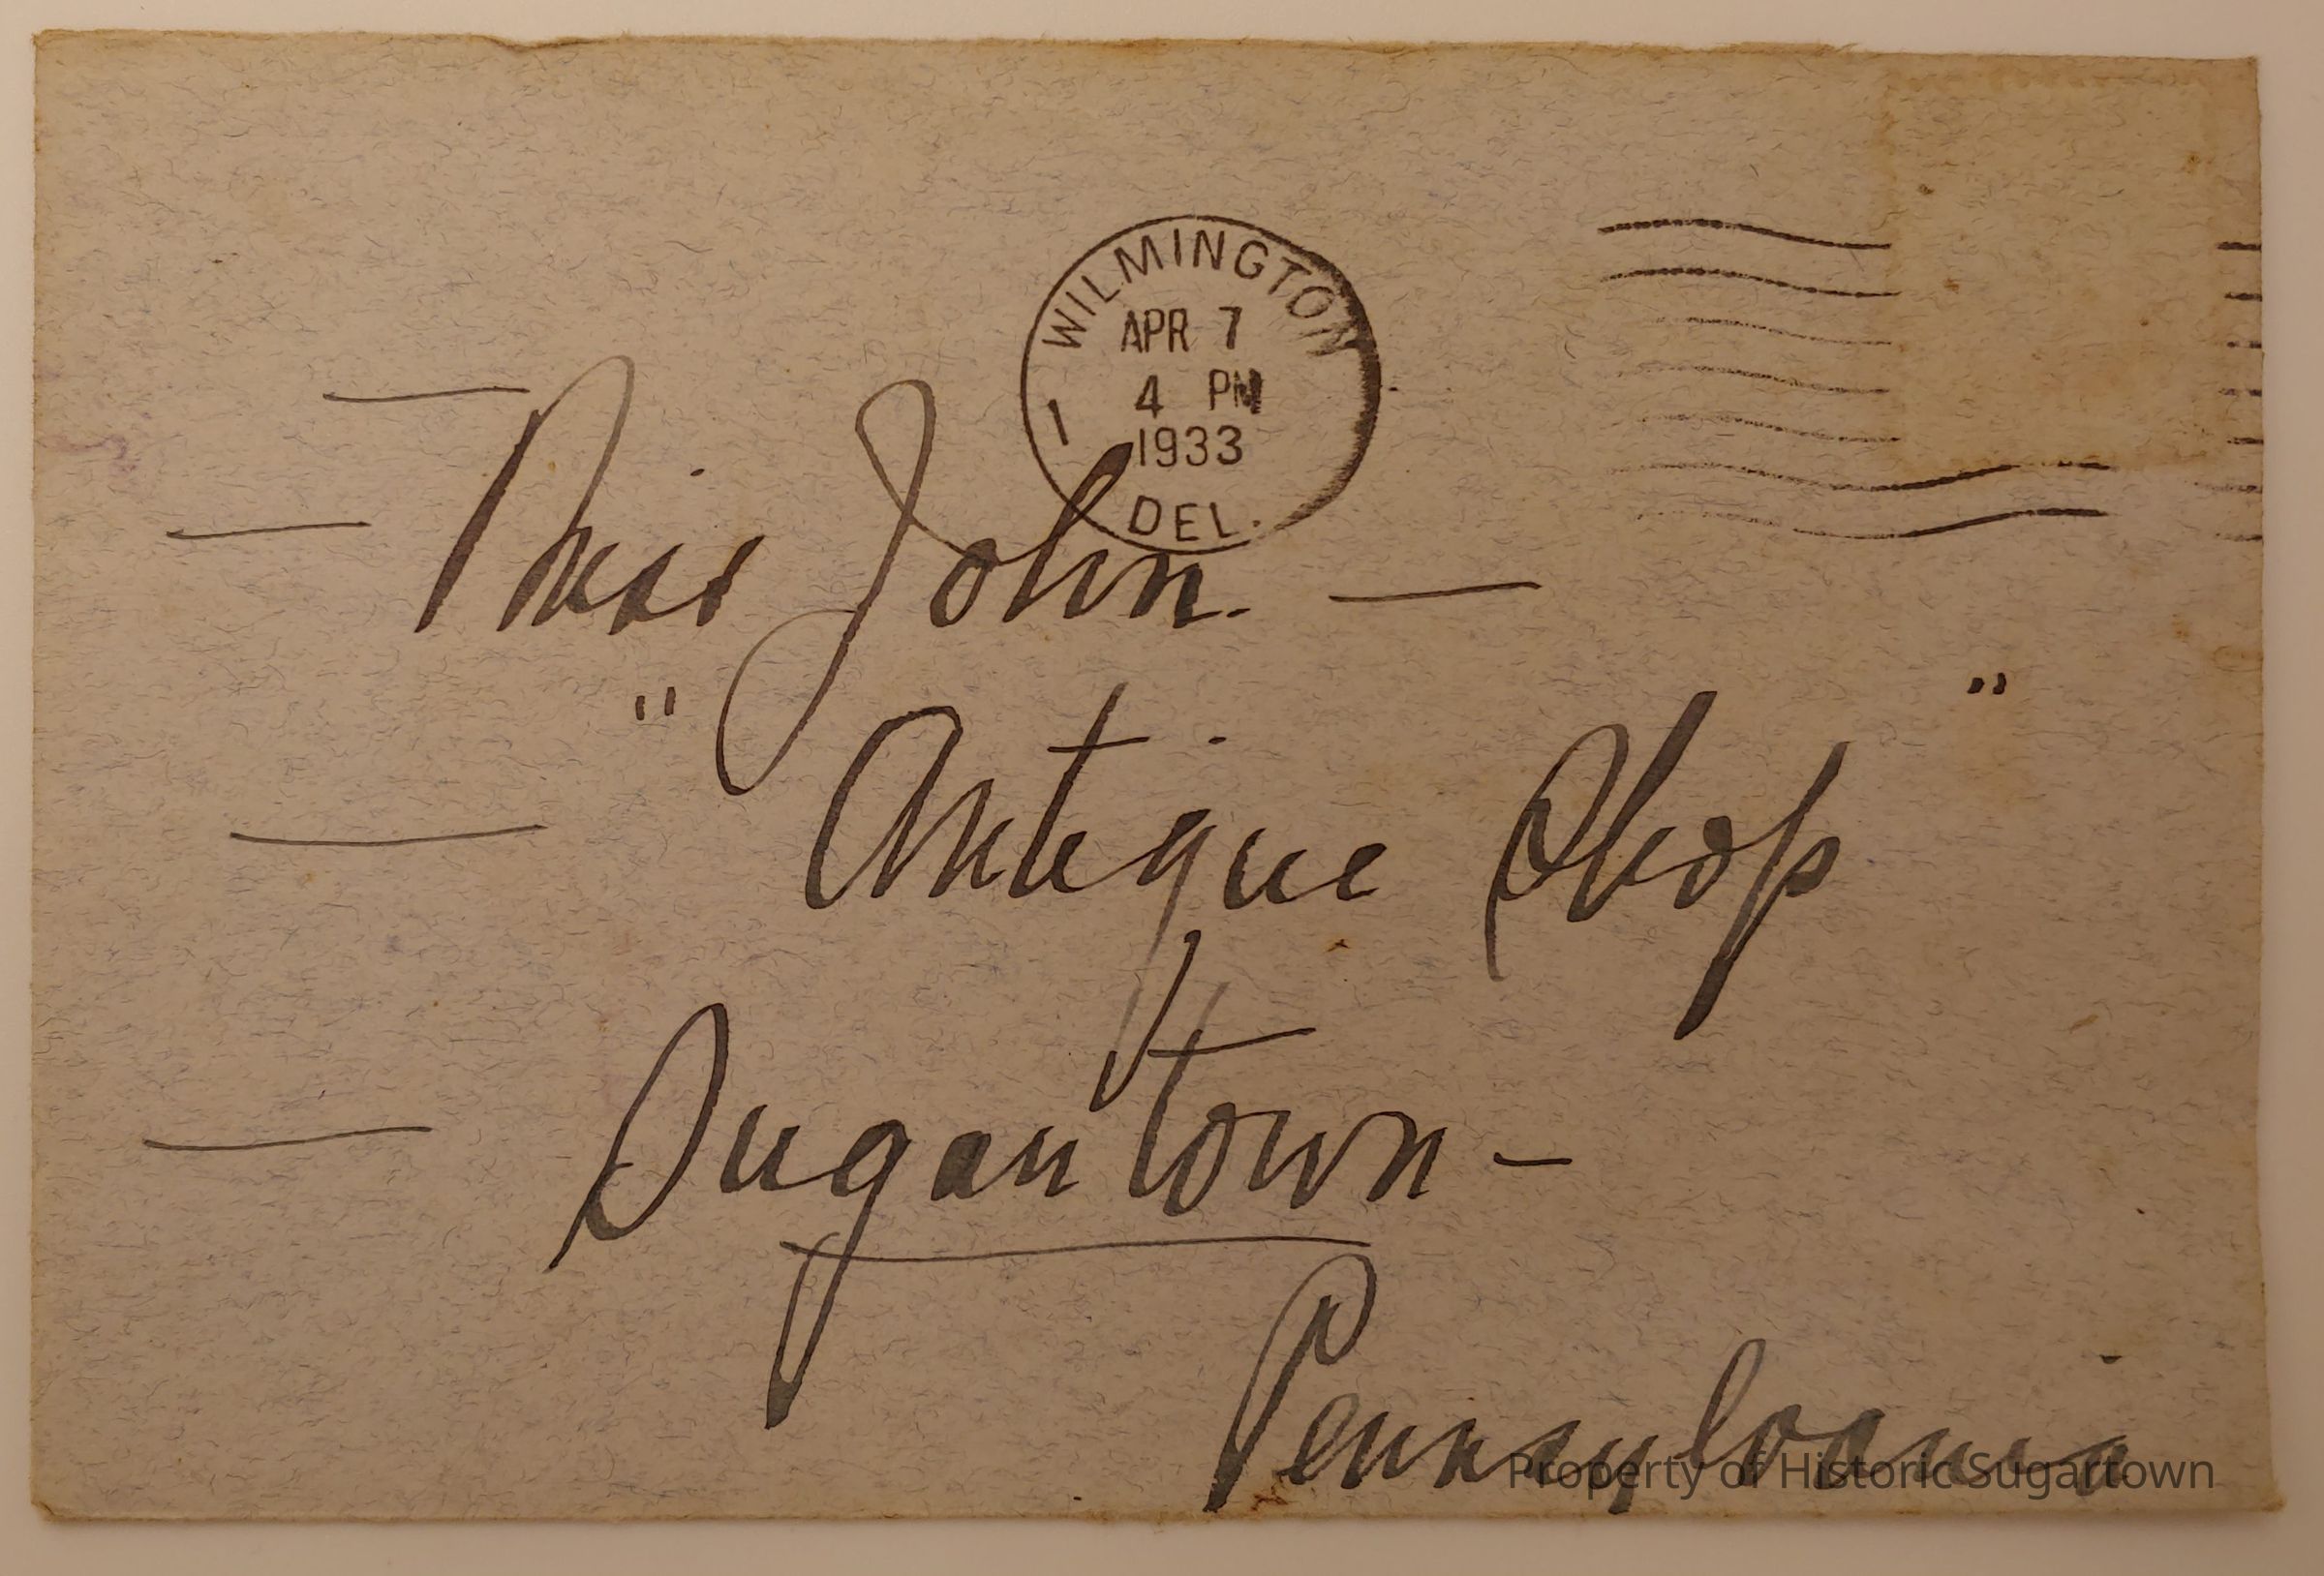 WILMINGTON
APR 7
4 PM
1933
1
DEL.
Miss John. —
" Antique Shop "
Sugartown —
Pennsylvania
Property of Historic Sugartown